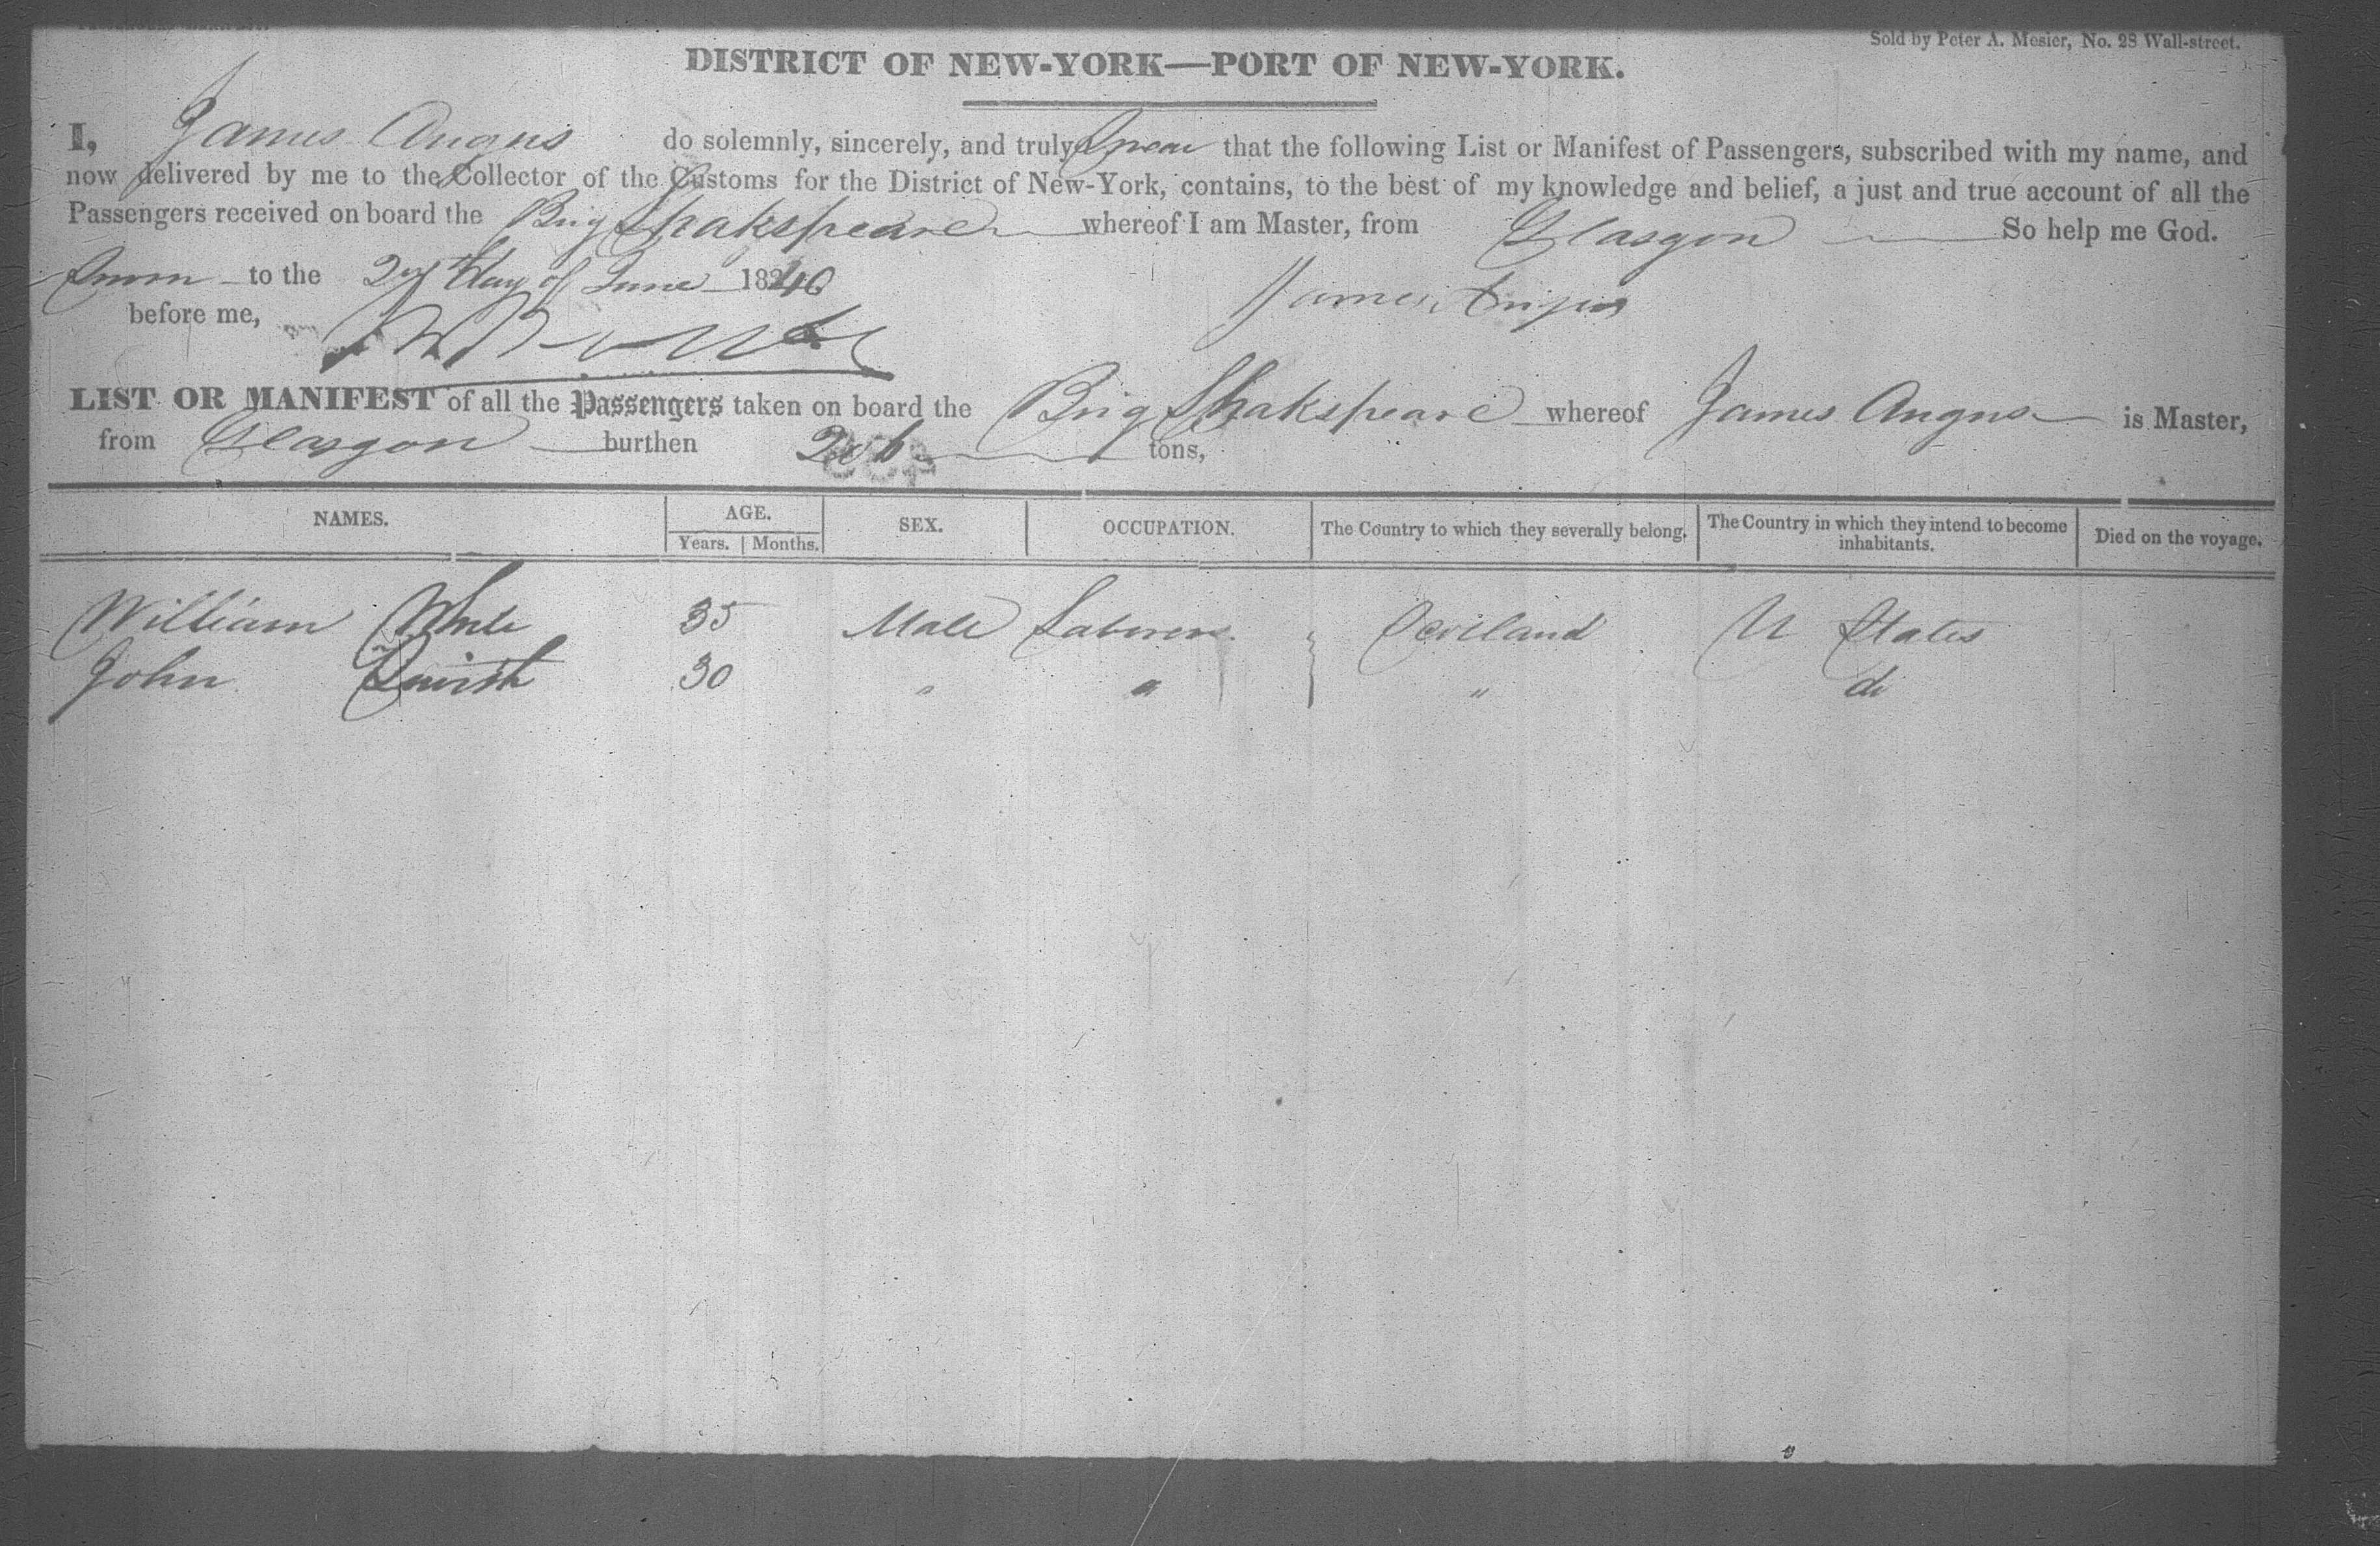 Sold by Peter A. Mesier, No. 28 Wall-street.
DISTRICT OF NEW-YORK—PORT OF NEW-YORK.
I, James Angus do solemnly, sincerely, and truly Swear that the following List or Manifest of Passengers, subscribed with my name, and
now delivered by me to the Collector of the Customs for the District of New-York, contains, to the best of my knowledge and belief, a just and true account of all the
Passengers received on board the Brig Shakspeare whereof I am Master, from Glasgow So help me God.
Sworn to the day of June 1840
James Angus
before me,
LIST OR MANIFEST of all the Passengers taken on board the Brig Shakspeare whereof James Angus is Master,
from Glasgow burthen tons,
NAMES. AGE. SEX. OCCUPATION. The Country to which they severally belong. The Country in which they intend to become inhabitants. Died on the voyage.
Years. Months.
William 35 Male Laborers Scotland U States
John 30 " " " do